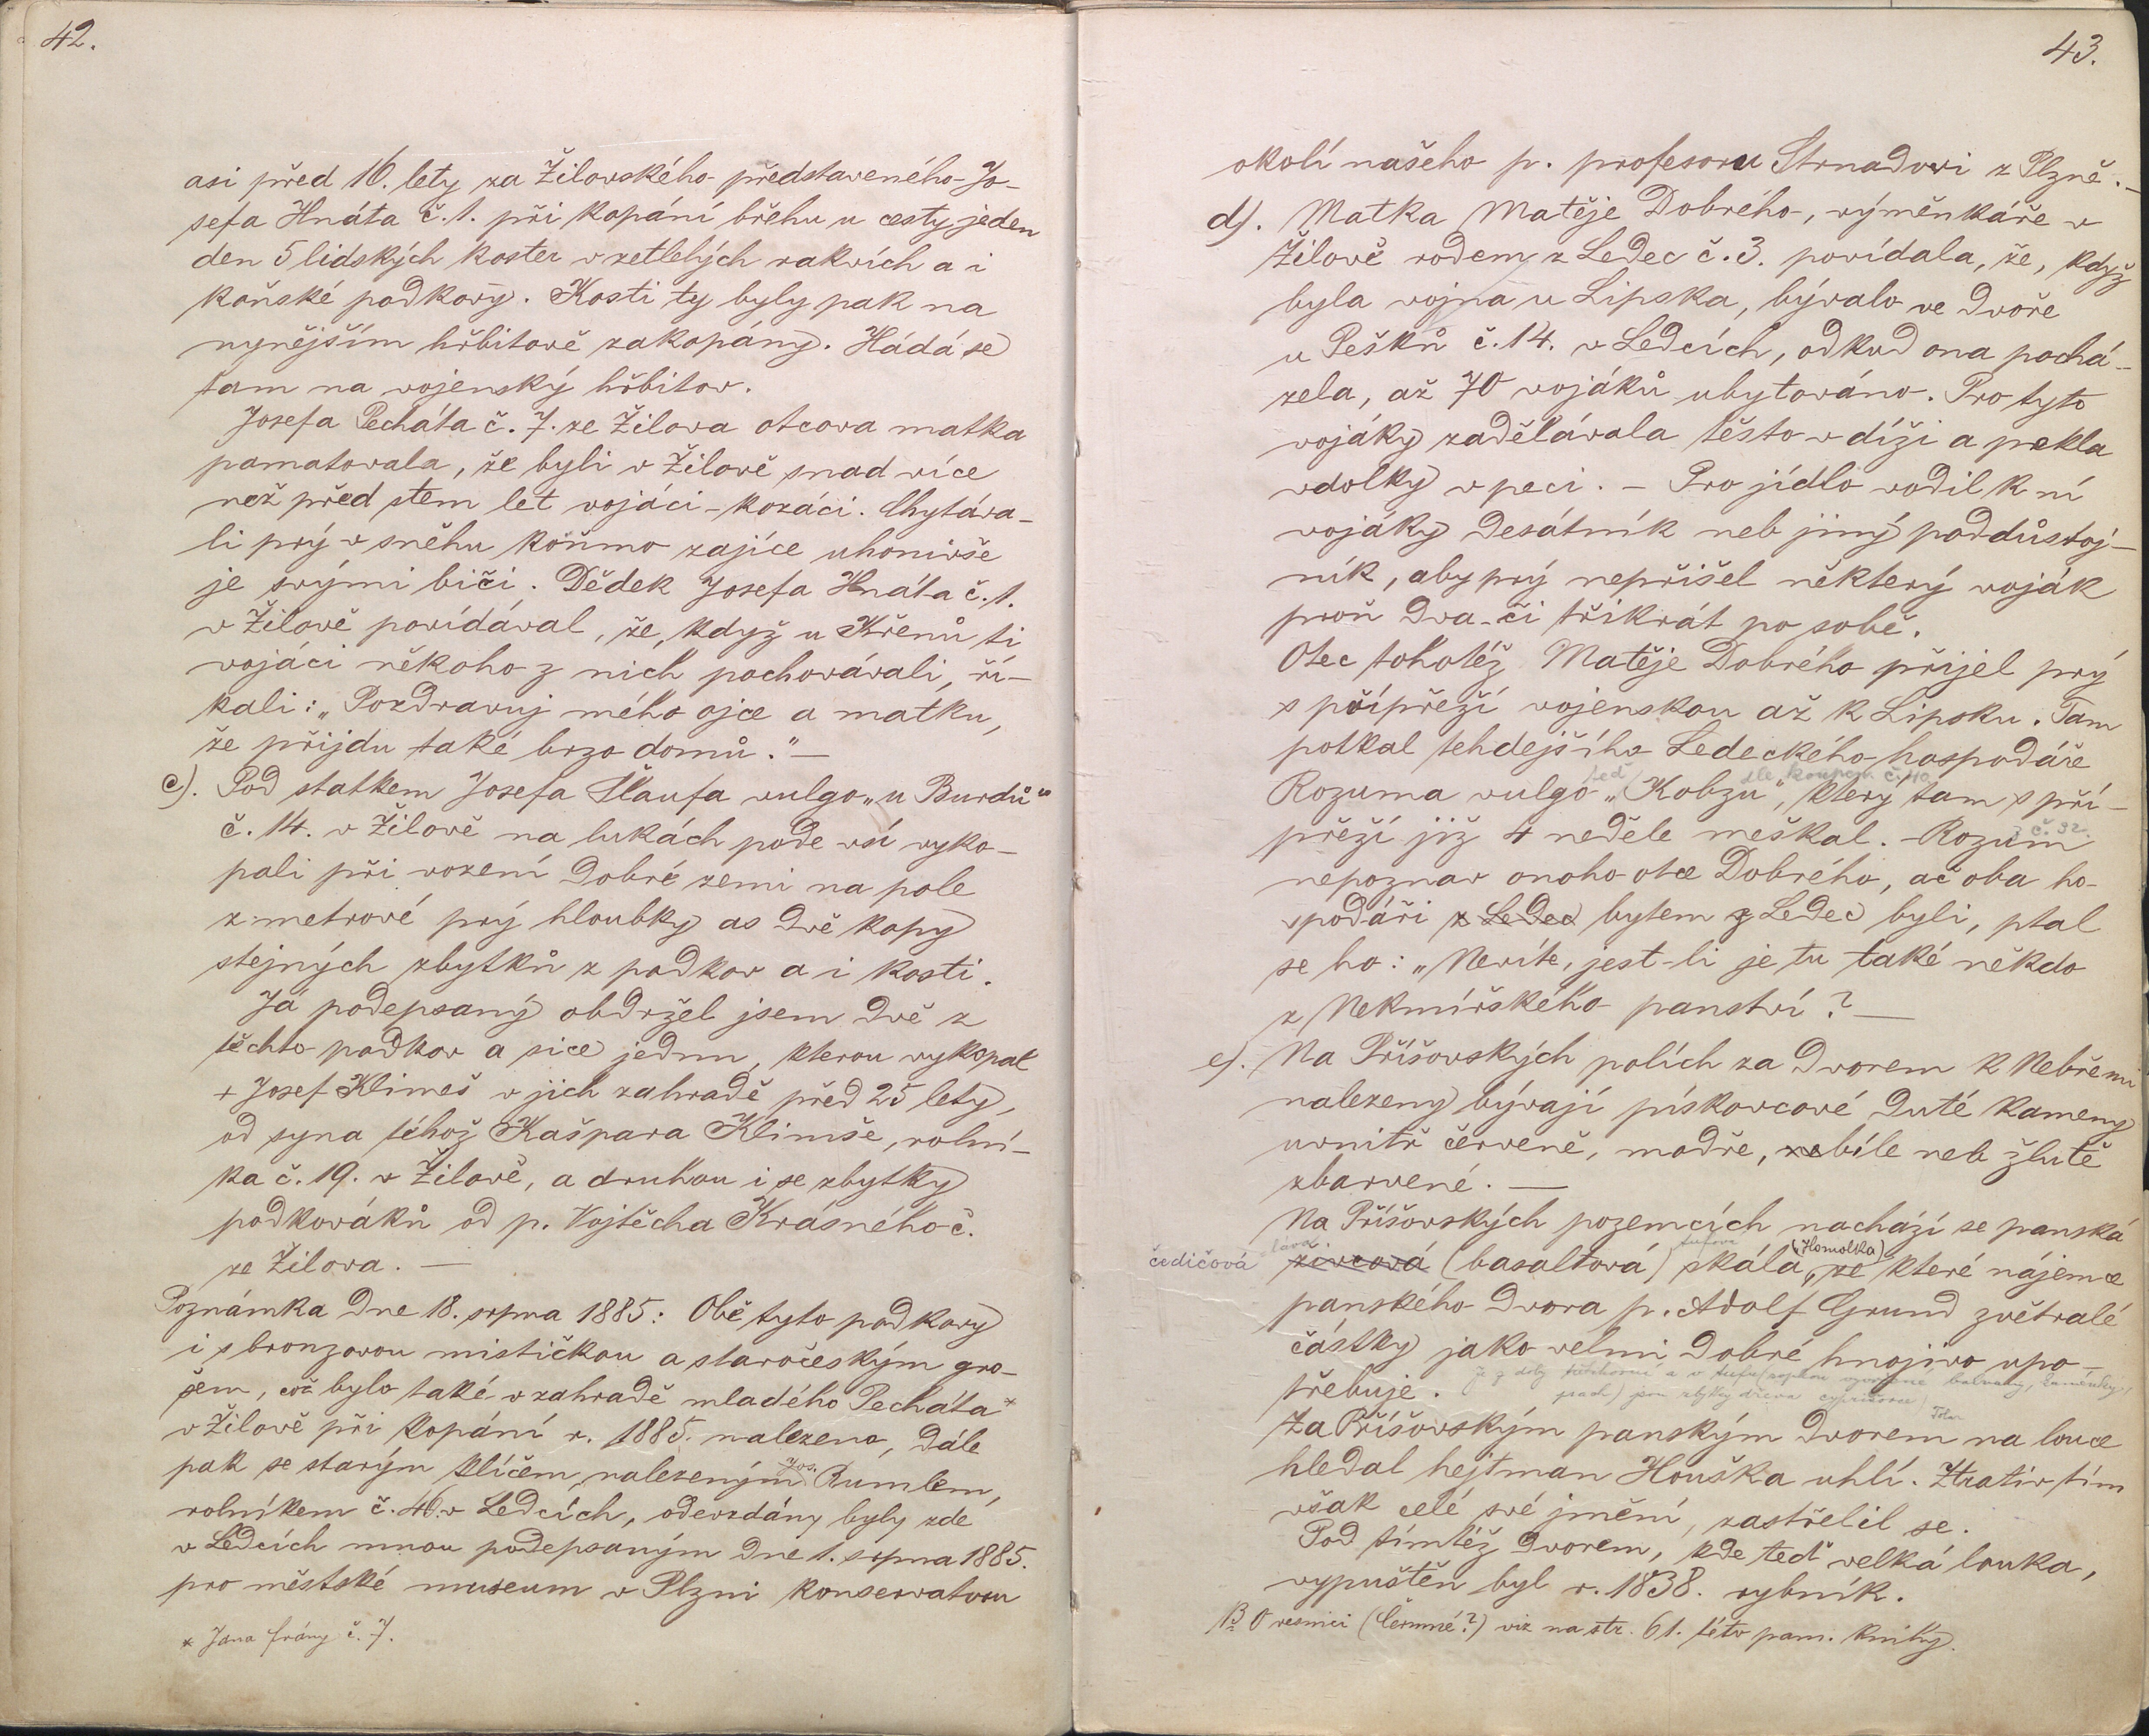 42.
asi před 16. lety za Žilovského představeného Jo-
sefa Hnáta č. 1. při kopání břehu u cesty jeden
den 5 lidských koster v zetlelých rakvích a i
koňské podkovy. Kosti ty byly pak na
nynějším hřbitově zakopány. Hádá se
tam na vojenský hřbitov.
Josefa Pecháta č. 7. ze Žilova otcova matka
pamatovala, že byli v Žilově snad více
než před stem let vojáci - kozáci. Chytáva-
li prý v sněhu koňmo zajíce uhonivše
je svými biči. Dědek Josefa Hnáta č. 1.
v Žilově povídával, že, když u Křenů ti
vojáci někoho z nich pochovávali, ří-
kali: „Pozdravuj mého ojce a matku,
že přijdu také brzo domů." —
c). Pod statkem Josefa Šlaufa vulgo „u Burdů"
č. 14. v Žilově na lukách pode vsí vyko-
pali při vození dobré zemi na pole
z metrové prý hloubky as dvě kopy
stejných zbytků z podkov a i kosti.
Já podepsaný obdržel jsem dvě z
těchto podkov a sice jednu, kterou vykopal
+ Josef Klimeš v jich zahradě před 25 lety,
od syna téhož Kašpara Klimše, rolní-
ka č. 19. v Žilově, a druhou i se zbytky
podkováků od p. Vojtěcha Krásného č.
ze Žilova. —
Poznámka dne 18. srpna 1885: Obě tyto podkovy
i s bronzovou mističkou a staročeským gro-
šem, což bylo také v zahradě mladého Pecháta *
v Žilově při kopání r. 1885. nalezeno, dále
pak se starým klíčem, nalezeným Jos. Rumlem,
rolníkem č. 46. v Ledcích, odevzdány byly zde
v Ledcích mnou podepsaným dne 1. srpna 1885.
pro městské museum v Plzni konservatoru
* Jana Frány č. 7.
43.
okolí našeho p. profesoru Strnadovi z Plzně. —
d). Matka Matěje Dobrého, výměnkáře v
Žilově rodem z Ledec č. 3. povídala, že, když
byla vojna u Lipska, bývalo ve dvoře
u Pešků č. 14. v Ledcích, odkud ona pochá-
zela, až 70 vojáků ubytováno. Pro tyto
vojáky zadělávala těsto v díži a pekla
vdolky v peci. — Pro jídlo vodil k ní
vojáky desátník neb jiný poddůstoj-
ník, aby prý nepřišel některý voják
proň dva- či třikrát po sobě.
Otec tohotéž Matěje Dobrého přijel prý
s přípřeží vojenskou až k Lipsku. Tam
potkal tehdejšího Ledeckého hospodáře
teď dle koupeb. č. 40
Rozuma vulgo „Kobzu", který tam s pří-
přeží již 4 neděle meškal. - Rozum
z č. 32.
nepoznav onoho otce Dobrého, ač oba ho-
spodáři z Ledec bytem z Ledec byli, ptal
se ho: „Nevíte, jest-li je tu také někdo
z Nekmířského panství? —
e). Na Příšovských polích za dvorem k Nebřemi
nalezeny bývají pískovcové duté kameny
uvnitř červeně, modře, bíle neb žlutě
zbarvené. —
Na Příšovských pozemcích nachází se panská
čedičová láva. živcová (basaltová) tufová skála, (Homolka) ze které nájemce
panského dvora p. Adolf Grund zvětralé
částky jako velmi dobré hnojivo upo-
třebuje.
Za Příšovským panským dvorem na louce
hledal hejtman Houška uhlí. Ztrativ tím
však celé své jmění, zastřelil se.
Pod tímtéž dvorem, kde teď velká louka,
vypuštěn byl r. 1838. rybník.
NB O vesnici (Čermné?) viz na str. 61. této pam. knihy.